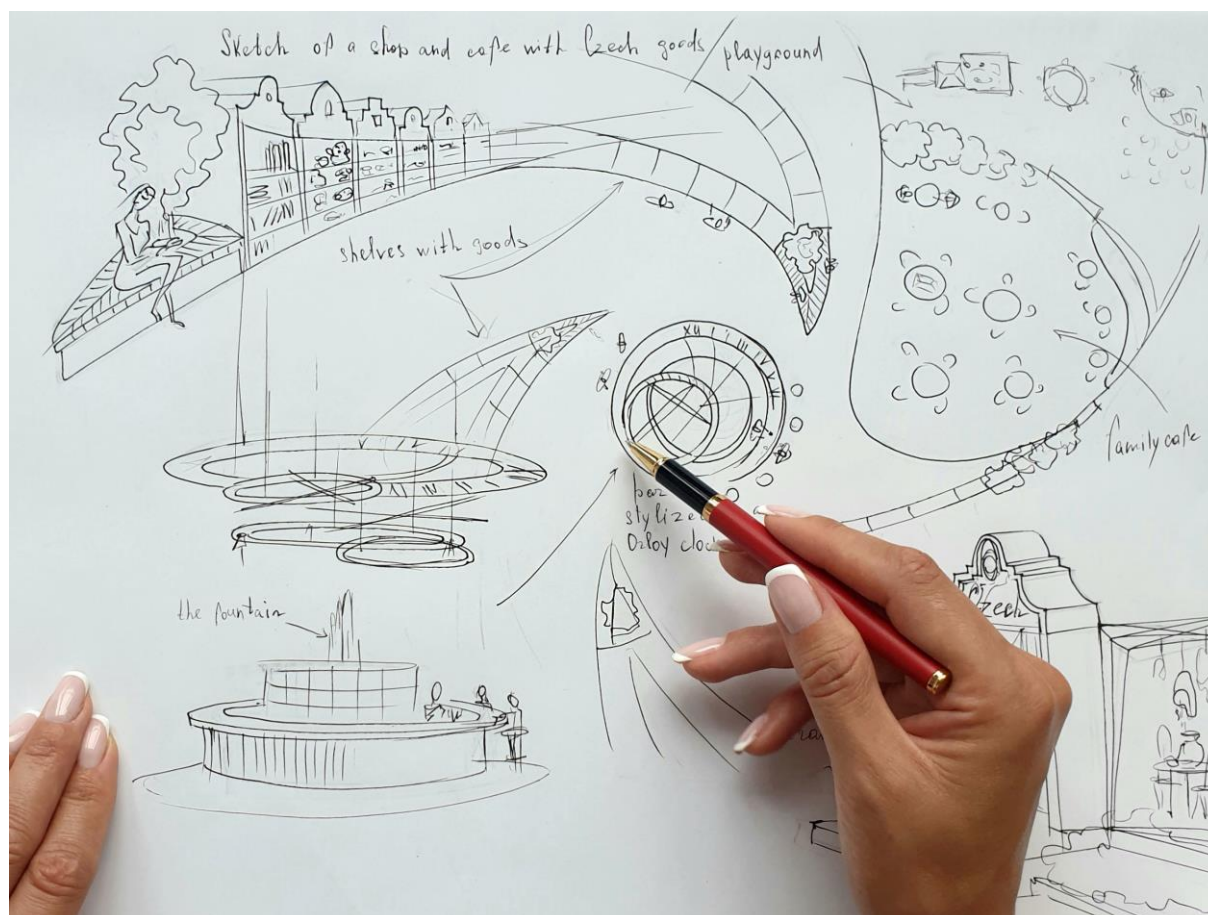 Sketch of a shop and cafe with Czech goods
playground
shelves with goods
XII I II III IV V VI
family cafe
bar
stylized
Orloy clock
the fountain
Czech